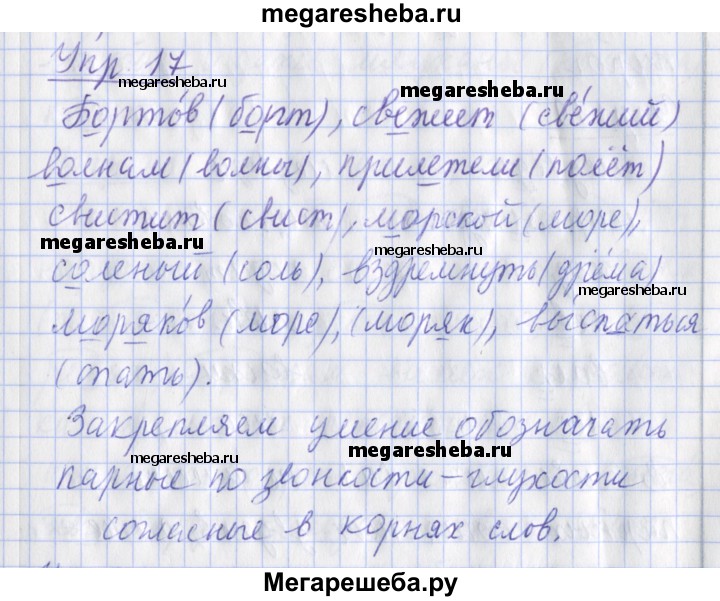 megaresheba.ru
Упр. 17
megaresheba.ru
megaresheba.ru
Бортов (борт), свежеет (свежий)
волнам (волны), прилетели (полёт)
свистит (свист), морской (море),
megaresheba.ru
megaresheba.ru
соленый (соль), вздремнуть (дрёма)
megaresheba.ru
моряков (море), (моряк), выспаться
(спать).
Закрепляем умение обозначать
megaresheba.ru
megaresheba.ru
парные по звонкости-глухости
согласные в корнях слов.
Мегарешеба.ру